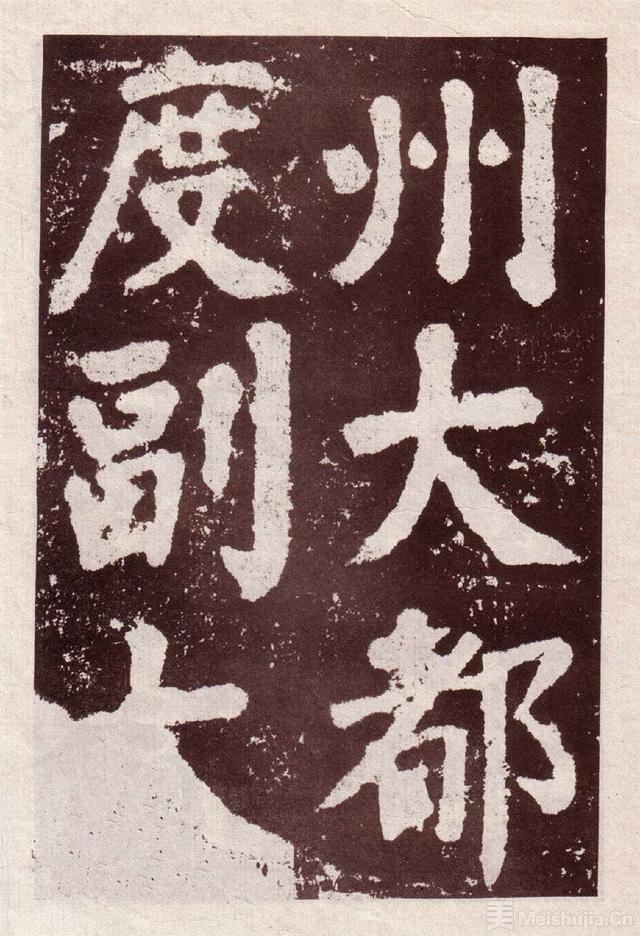 州大都
度副大
Meishujia.Cn